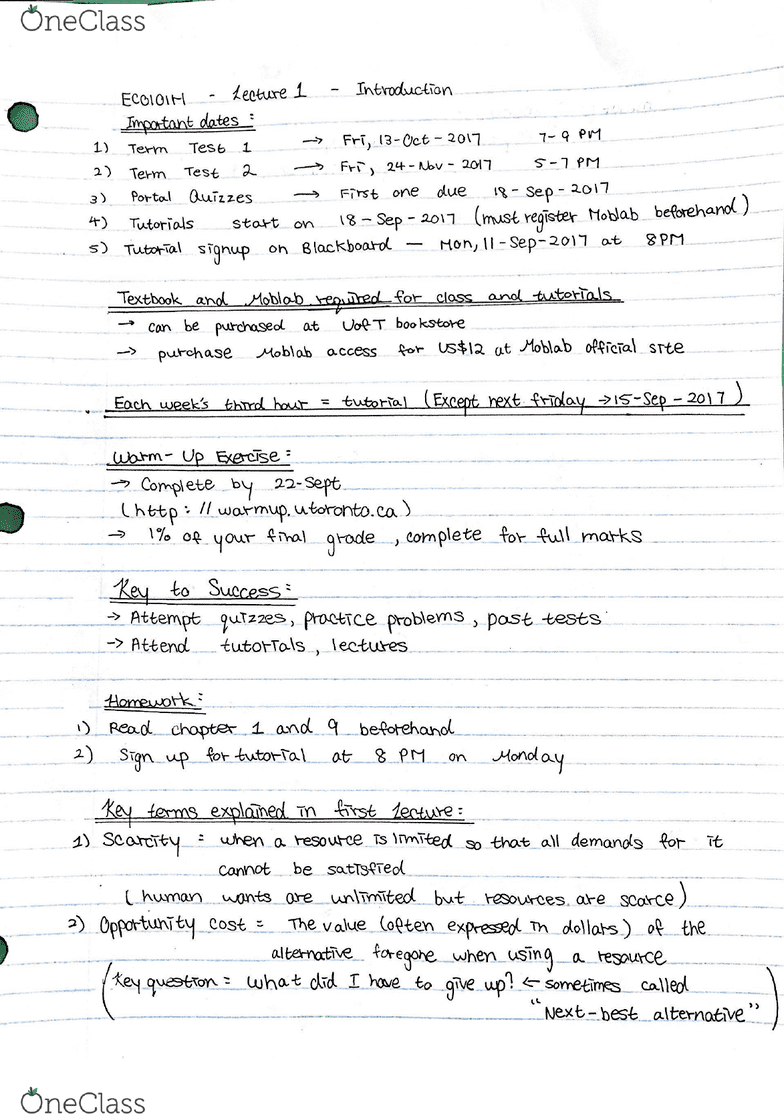 OneClass
ECO101H - Lecture 1 - Introduction
Important dates:
1) Term Test 1 → Fri, 13-Oct-2017 7-9 PM
2) Term Test 2 → Fri, 24-Nov-2017 5-7 PM
3) Portal Quizzes → First one due 18-Sep-2017
4) Tutorials start on 18-Sep-2017 (must register Moblab beforehand)
5) Tutorial signup on Blackboard — Mon, 11-Sep-2017 at 8PM
Textbook and Moblab required for class and tutorials
→ can be purchased at UofT bookstore
→ purchase Moblab access for US$12 at Moblab official site
Each week's third hour = tutorial (Except next friday → 15-Sep-2017)
Warm-Up Exercise:
→ Complete by 22-Sept
(http://warmup.utoronto.ca)
→ 1% of your final grade, complete for full marks
Key to Success:
→ Attempt quizzes, practice problems, past tests
→ Attend tutorials, lectures
Homework:
1) Read chapter 1 and 9 beforehand
2) Sign up for tutorial at 8 PM on Monday
Key terms explained in first lecture:
1) Scarcity = when a resource is limited so that all demands for it
cannot be satisfied
(human wants are unlimited but resources are scarce)
2) Opportunity cost = The value (often expressed in dollars) of the
alternative foregone when using a resource
(Key question = what did I have to give up? ← sometimes called
"Next-best alternative")
OneClass